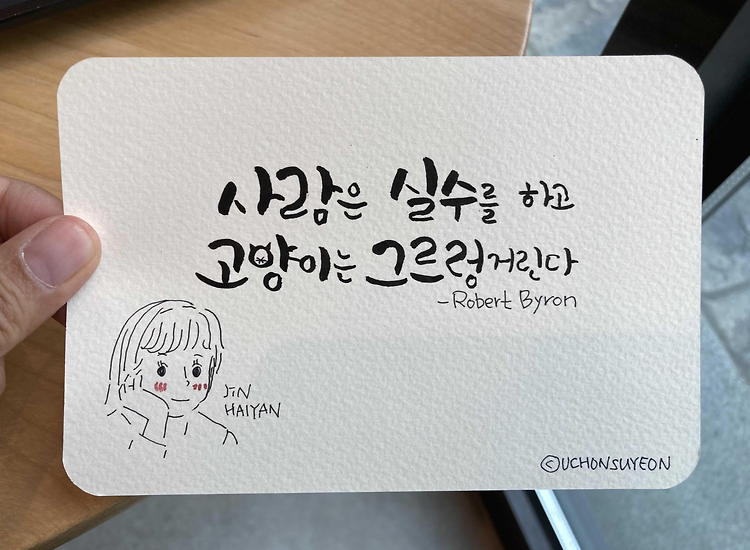 사람은 실수를 하고
고양이는 그르렁거린다
-Robert Byron
JIN
HAIYAN
©UCHONSUYEON